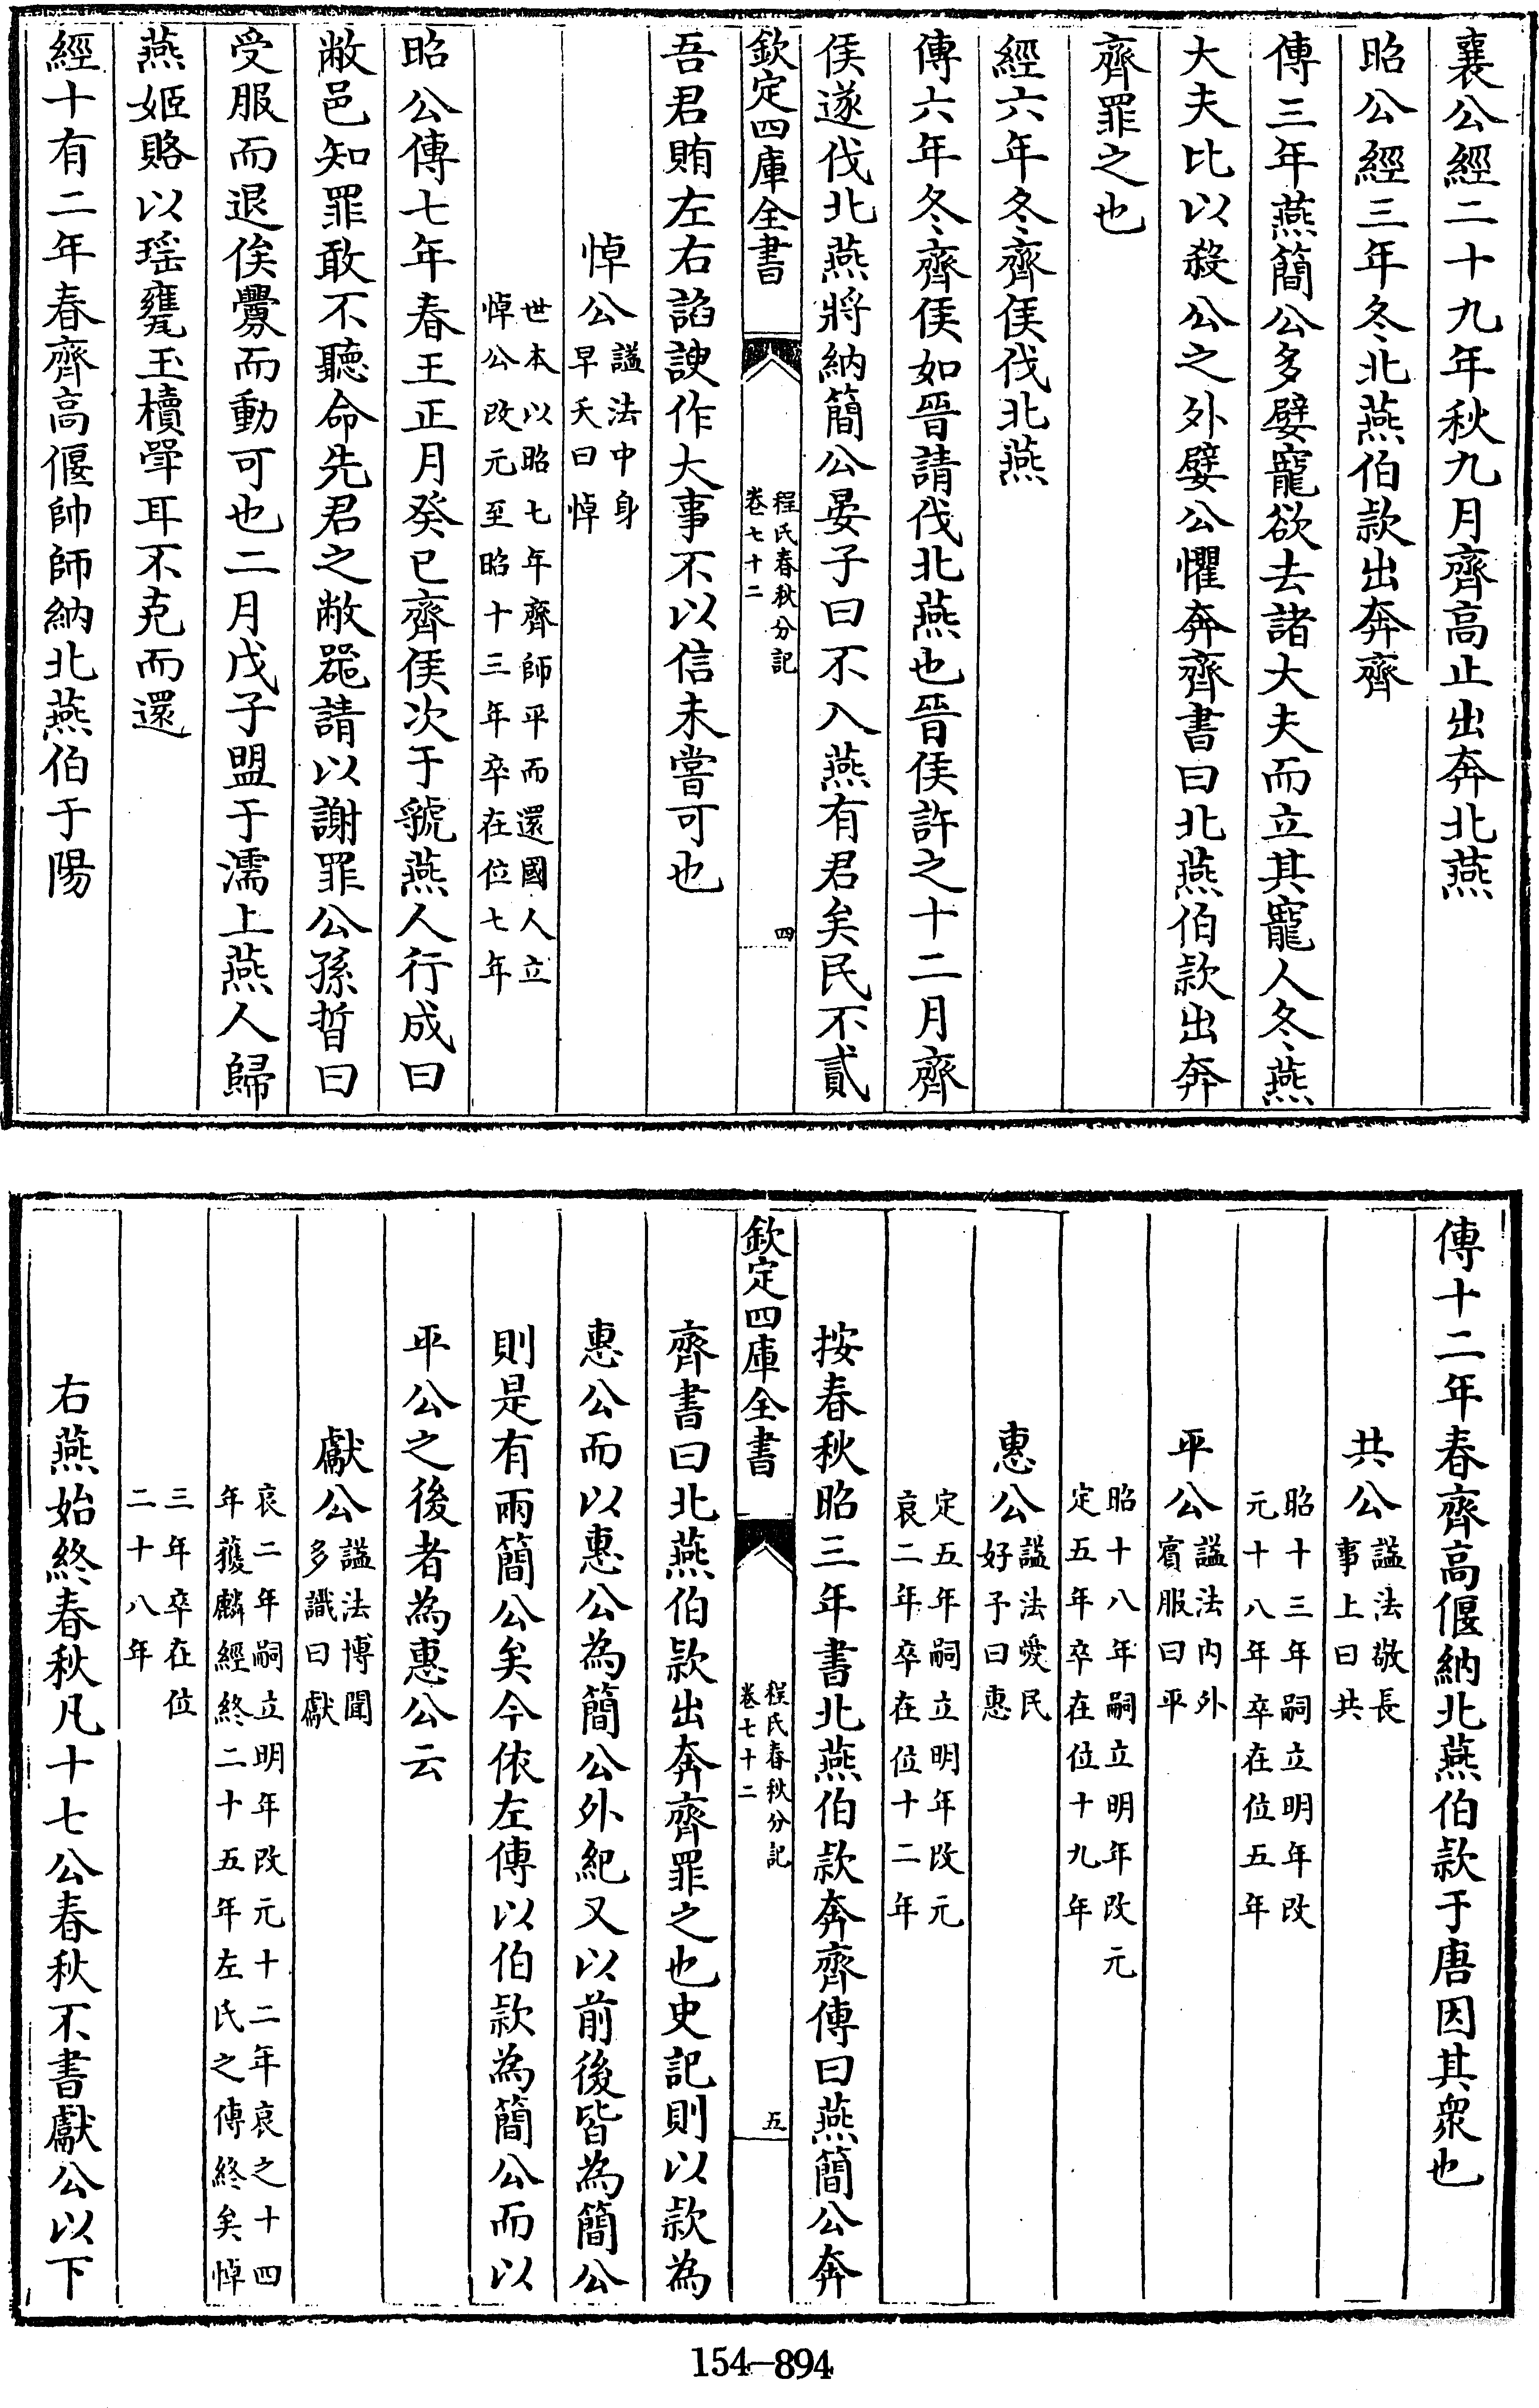 襄公經二十九年秋九月齊高止出奔北燕
昭公經三年冬北燕伯款出奔齊
傳三年燕簡公多嬖寵欲去諸大夫而立其寵人冬燕
大夫比以殺公之外嬖公懼奔齊書曰北燕伯款出奔
齊罪之也
經六年冬齊侯伐北燕
傳六年冬齊侯如晉請伐北燕也晉侯許之十二月齊
侯遂伐北燕將納簡公晏子曰不入燕有君矣民不貳
欽定四庫全書
程氏春秋分記
卷七十二
四
吾君賄左右諂諛作大事不以信未嘗可也
悼公
諡法中身
早夭曰悼
世本以昭七年齊師平而還國人立
悼公改元至昭十三年卒在位七年
昭公傳七年春王正月癸巳齊侯次于虢燕人行成曰
敝邑知罪敢不聽命先君之敝器請以謝罪公孫晳曰
受服而退俟釁而動可也二月戊子盟于濡上燕人歸
燕姬賂以瑤甕玉櫝斝耳不克而還
經十有二年春齊高偃帥師納北燕伯于陽
傳十二年春齊高偃納北燕伯款于唐因其衆也
共公
諡法敬長
事上曰共
昭十三年嗣立明年改
元十八年卒在位五年
平公
諡法内外
賓服曰平
昭十八年嗣立明年改元
定五年卒在位十九年
惠公
諡法愛民
好予曰惠
定五年嗣立明年改元
哀二年卒在位十二年
按春秋昭三年書北燕伯款奔齊傳曰燕簡公奔
欽定四庫全書
程氏春秋分記
卷七十二
五
齊書曰北燕伯款出奔齊罪之也史記則以款為
惠公而以惠公為簡公外紀又以前後皆為簡公
則是有兩簡公矣今依左傳以伯款為簡公而以
平公之後者為惠公云
獻公
諡法博聞
多識曰獻
哀二年嗣立明年改元十二年哀之十四
年獲麟經終二十五年左氏之傳終矣悼
三年卒在位
二十八年
右燕始終春秋凡十七公春秋不書獻公以下
154-894